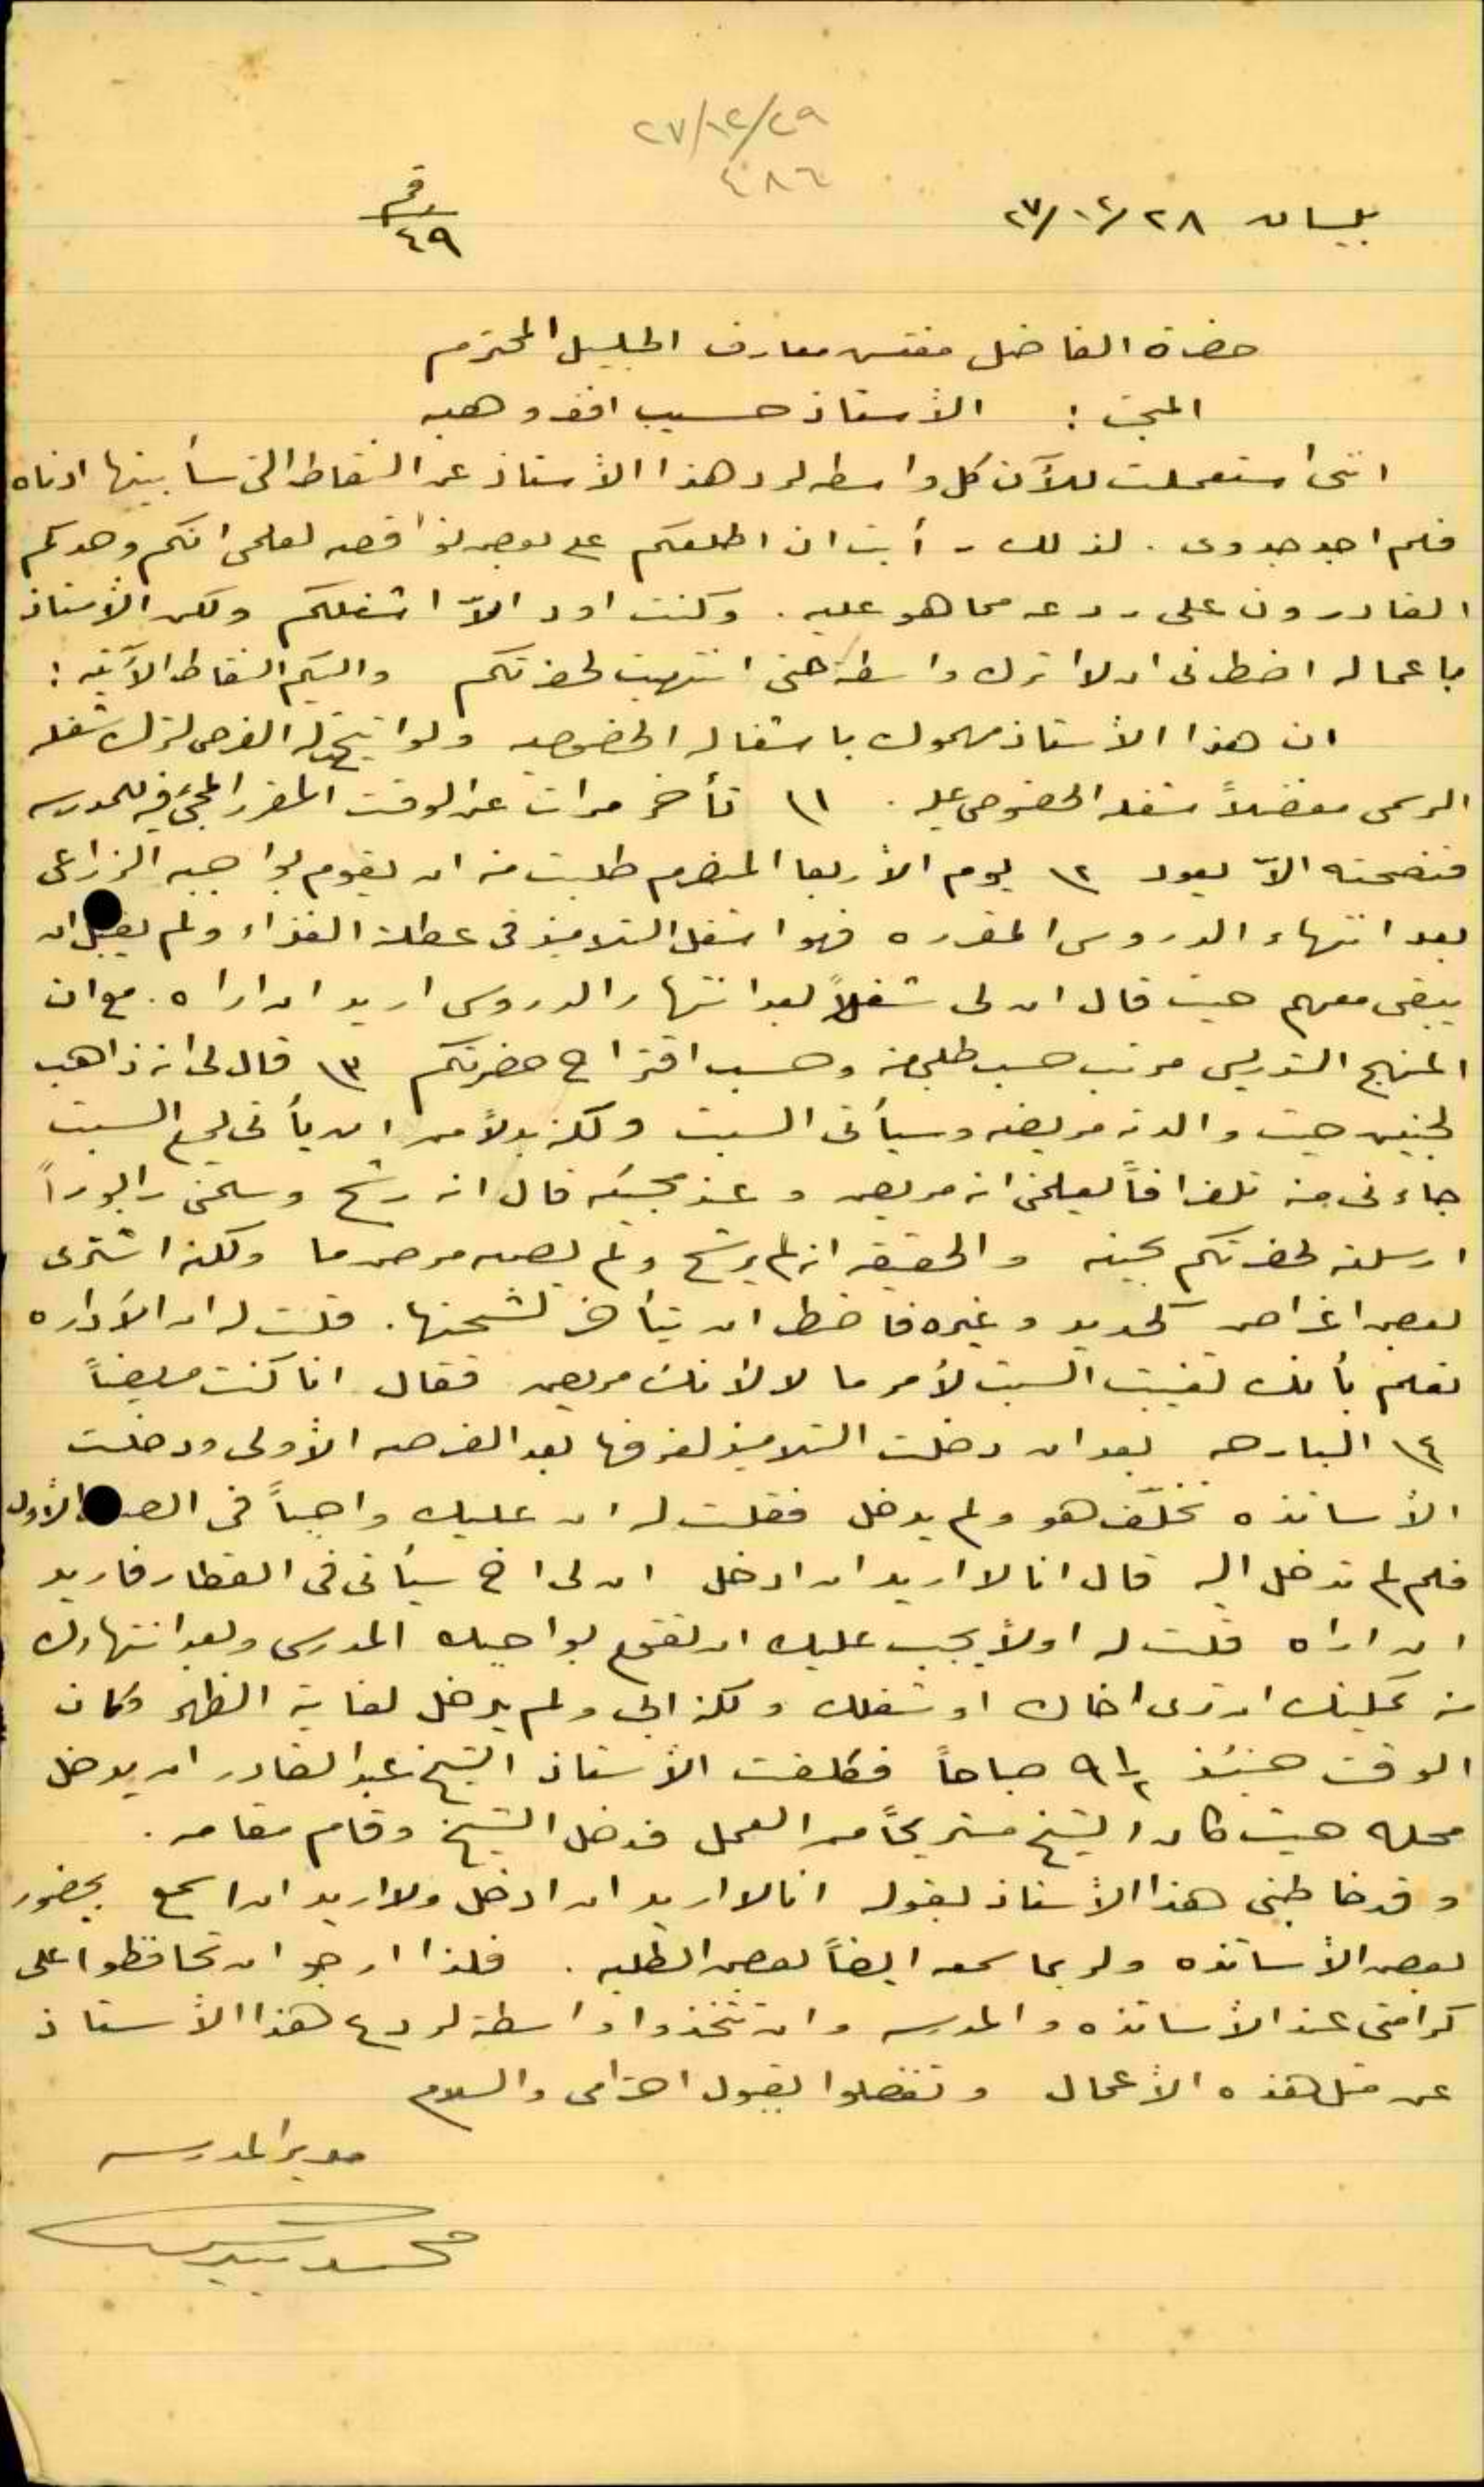 ٢٧/١٢/٢٩
٤٨٦
بيسان ٢٨/١٢/٢٧
رقم ٤٩
حضرة الفاضل مفتش معارف الجليل المحترم
المبحث : الأستاذ حسيب افندي وهبه
انني استعملت للآن كل واسطه لرد هذا الأستاذ عن النقاط التي سأبينها ادناه
فلم اجد جدوى . لذلك رأيت ان اطلعكم على بعض نواقصه لعلمي انكم وحدكم
القادرون على ردعه مما هو عليه . وكنت اود الاّ اشغلكم ولكن الأستاذ
باعماله اضطرني ان لا اترك واسطة حتى انتهيت لحضرتكم واليكم النقاط الآتيه :
ان هذا الأستاذ مهموك باشغاله الخصوصيه ولو اتيحت له الفرص لترك شغله
الرسمي مفضلاً شغله الخصوصي عليه . ١) تأخر مرات عن الوقت المقرر المجيء فيه للمدرسه
فنصحته الاّ يعود ٢) يوم الأربعا المنصرم طلبت منه ان يقوم بواجبه الزراعي
بعد انتهاء الدروس المقرره فهو اشغل التلاميذ في عطلة الغذاء ولم يقبل ان
يبقى معهم حيث قال ان لي شغلاً بعد انتهاء الدروس اريد ان اراه . مع ان
المنهج التدريسي مرتب حسب طلبي منه وحسب اقتراح حضرتكم ٣) قال لي انه ذاهب
لجنين حيث والدته مريضه وسيأتي السبت ولكنه بدلاً من ان يأتي السبت
جاءني منه تلغرافاً يعلمني انه مريض وعند مجيئه قال انه رشح وسلمني رابوراً
ارسلته لحضرتكم بحينه والحقيقه انه لم يرشح ولم يصبه مرض ما ولكنه اشترى
بعض اغراض كحديد وغيره فاضطر ان يتأخر لشحنها . قلت له ان الآداره
تعلم بأنك تغيبت السبت لأمر ما لا لأنك مريض فقال انا كنت مريضاً
٤) البارحه بعد ان دخلت التلاميذ لغرفها بعد الفرصه الأولى ودخلت
الأساتذه تخلّف هو ولم يدخل فقلت له ان عليك واجباً في الصف الأول
فلم لم تدخل اليه قال انا لا اريد ان ادخل ان لي اخ سيأتي في القطار فاريد
ان اراه قلت له اولاً يجب عليك ان تقوم بواجبك المدرسي وبعد انتهاءك
منه يمكنك ان ترى اخاك او شغلك ولكنه ابى ولم يدخل لغاية الظهر وكان
الوقت حينئذ ٩ ١/٢ صباحاً فكلفت الأستاذ الشيخ عبد القادر ان يدخل
محله حيث كان الشيخ مستريحاً من العمل فدخل الشيخ وقام مقامه .
وقد خاطبني هذا الأستاذ بقوله انا لا اريد ان ادخل ولا اريد ان اسمع بحضور
بعض الأساتذه ولربما سمعه ايضاً بعض الطلبه . فلذا ارجو ان تحافظوا على
كرامتي عند الأساتذه والمدرسه وان تتخذوا واسطة لردع هذا الأستاذ
عن مثل هذه الأعمال وتفضلوا بقبول احترامي والسلام
مدير المدرسه
محمد